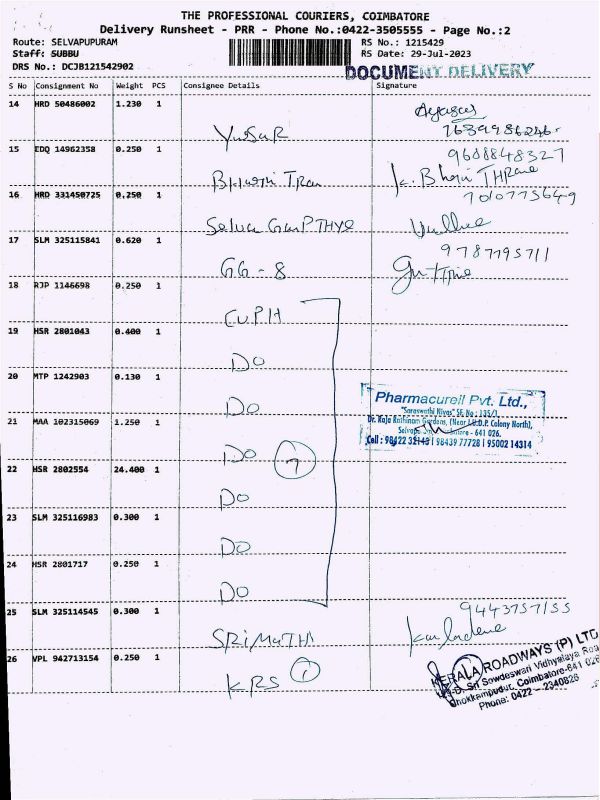 THE PROFESSIONAL COURIERS, COIMBATORE
Delivery Runsheet - PRR - Phone No.:0422-3505555 - Page No.:2
Route: SELVAPUPURAM
RS No.: 1215429
Staff: SUBBU
RS Date: 29-Jul-2023
DRS No.: DCJB121542902
DOCUMENT DELIVERY
S No Consignment No Weight PCS Consignee Details Signature
14 HRD 50486002 1.230 1
15 EDQ 14962358 0.250 1
9688848327
16 HRD 331450725 0.250 1
7010775649
Selva
17 SLM 325115841 0.620 1
9787795711
GG - 8
18 RJP 1146698 0.250 1
CUPH
19 HSR 2801043 0.400 1
DO
20 MTP 1242903 0.130 1
DO
Pharmacureil Pvt. Ltd.,
"Saraswathi Nivas" SF. No : 135/1,
Dr. Raja Rathinam Gardens, (Near I.U.D.P. Colony North),
641 026.
Cell : 98422 32143 | 98439 77728 | 95002 14314
21 MAA 102315069 1.250 1
DO 7
22 HSR 2802554 24.400 1
DO
23 SLM 325116983 0.300 1
DO
24 HSR 2801717 0.250 1
DO
25 SLM 325114545 0.300 1
9443757155
26 VPL 942713154 0.250 1
KRS 1
KERALA ROADWAYS (P) LTD
Sri Sowdeswari Vidhyalaya Roa
Chokkampudur, Coimbatore-641 026
Phone: 0422 - 2340828